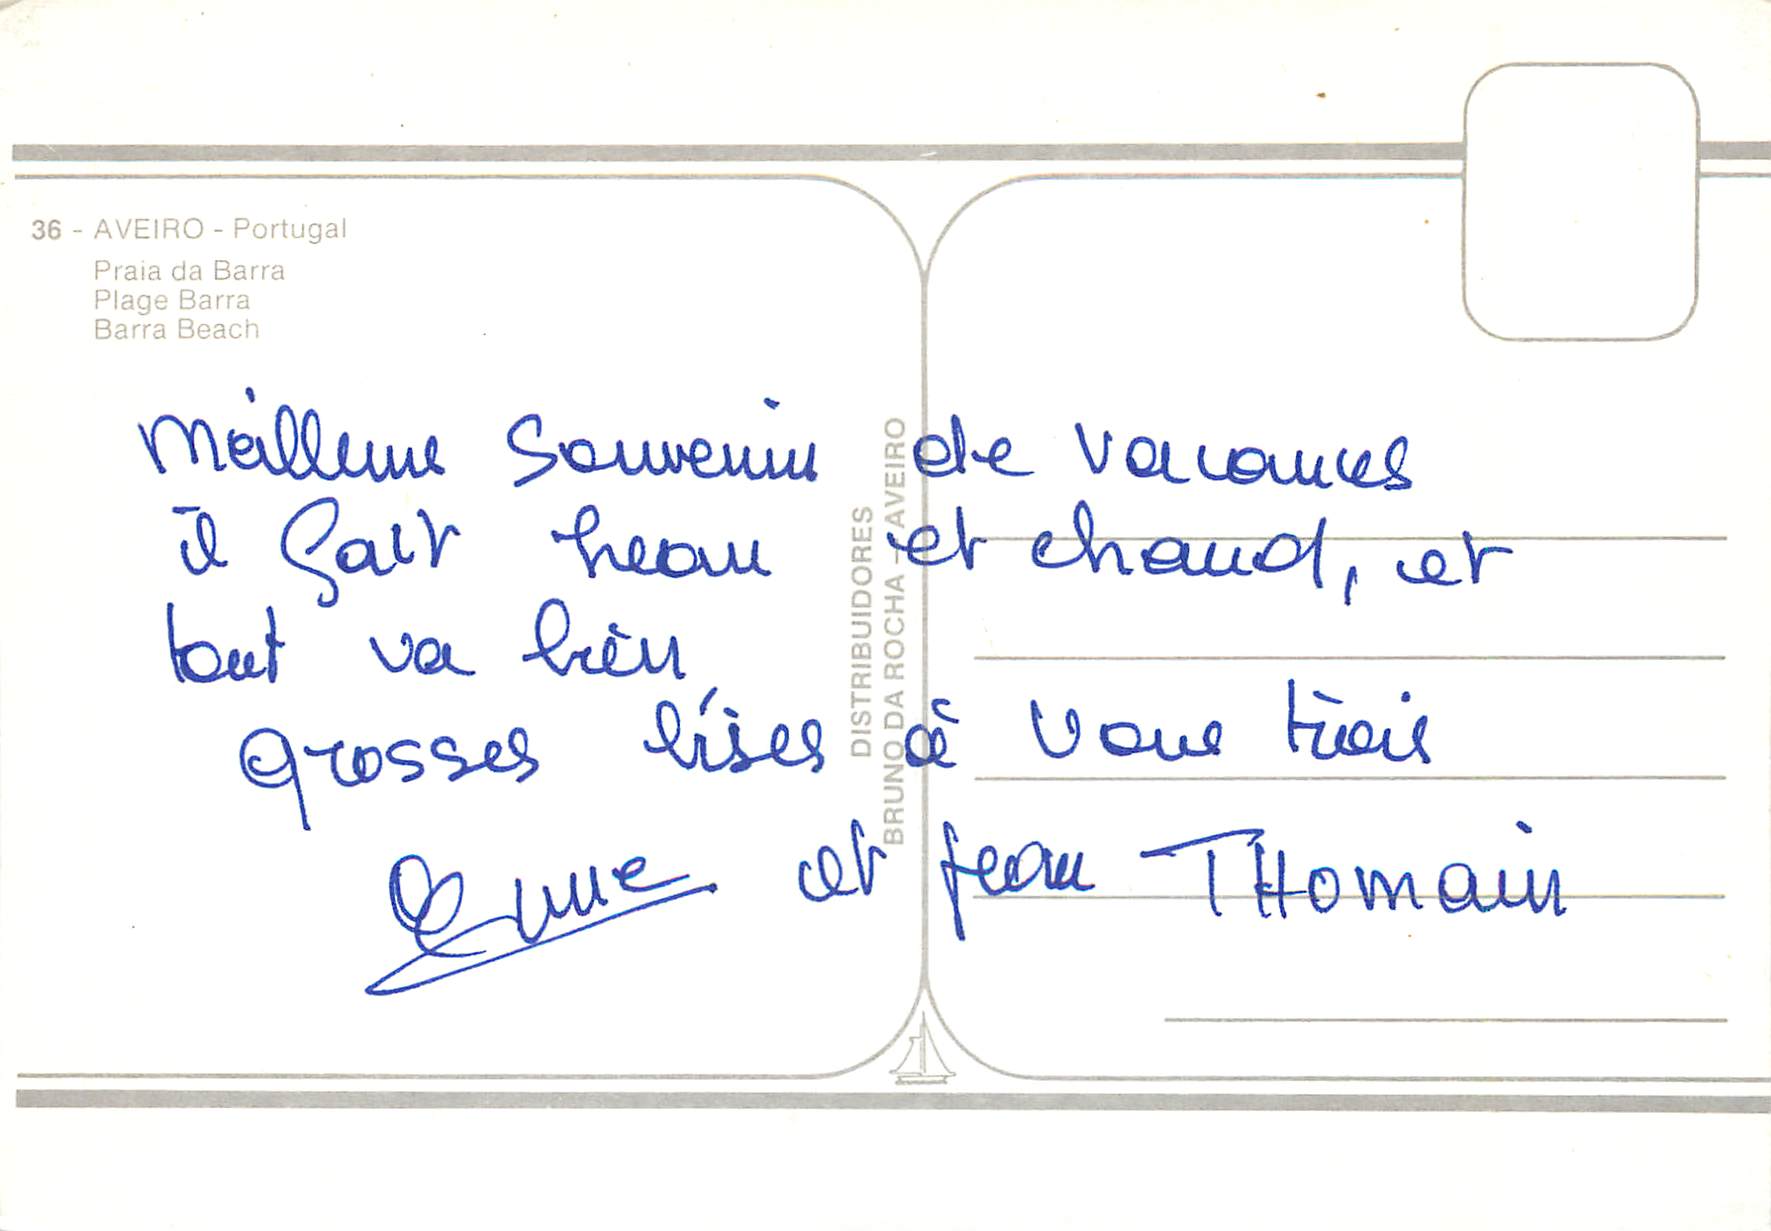 36 - AVEIRO - Portugal
Praia da Barra
Plage Barra
Barra Beach
DISTRIBUIDORES
BRUNO DA ROCHA - AVEIRO
Meilleurs Souvenirs de vacances
il fait beau et chaud, et
tout va bien
grosses bises à vous trois
et jean THomain